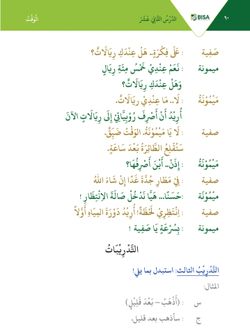 ٩٠ BISA الدَّرْسُ الثَّانِي عَشَرَ الْوَقْتُ
صَفِيَّة : عَلَى فِكْرَةٍ، هَلْ عِنْدَكِ رِيَالَاتٌ؟
ميمونة : نَعَمْ عِنْدِيْ خَمْسُ مِئَةِ رِيَالٍ
وَهَلْ عِنْدَكِ رِيَالَاتٌ؟
مَيْمُوْنَةُ : لَا.. مَا عِنْدِيْ رِيَالَاتٌ.
أُرِيْدُ أَنْ أَصْرِفَ رُوْبِيَّاتِيْ إِلَى رِيَالَاتٍ الآنَ
صفية : لَا يَا مَيْمُوْنَةُ، الوَقْتُ ضَيِّقٌ.
سَتُقْلِعُ الطَّائِرَةُ بَعْدَ سَاعَةٍ.
مَيْمُوْنَةُ : إِذَنْ.. أَيْنَ أَصْرِفُهَا؟
صفية : فِيْ مَطَارِ جُدَّةَ غَدًا إِنْ شَاءَ اللهُ
مَيْمُوْنَةُ : حَسَنًا... هَيَّا نَدْخُلُ صَالَةَ الاِنْتِظَارِ !
صفية : اِنْتَظِرِيْ لَحْظَةً! أُرِيْدُ دَوْرَةَ المِيَاهِ أَوَّلًا
ميمونة : بِسُرْعَةٍ يَا صَفِية !
التَّدْرِيْبَاتُ
التَّدْرِيْبُ الثالث: استبدل بما يلي!
المثال:
س : (أَذْهَبُ – بَعْدَ قَلِيْلٍ)
ج : سأذهب بعد قليل.